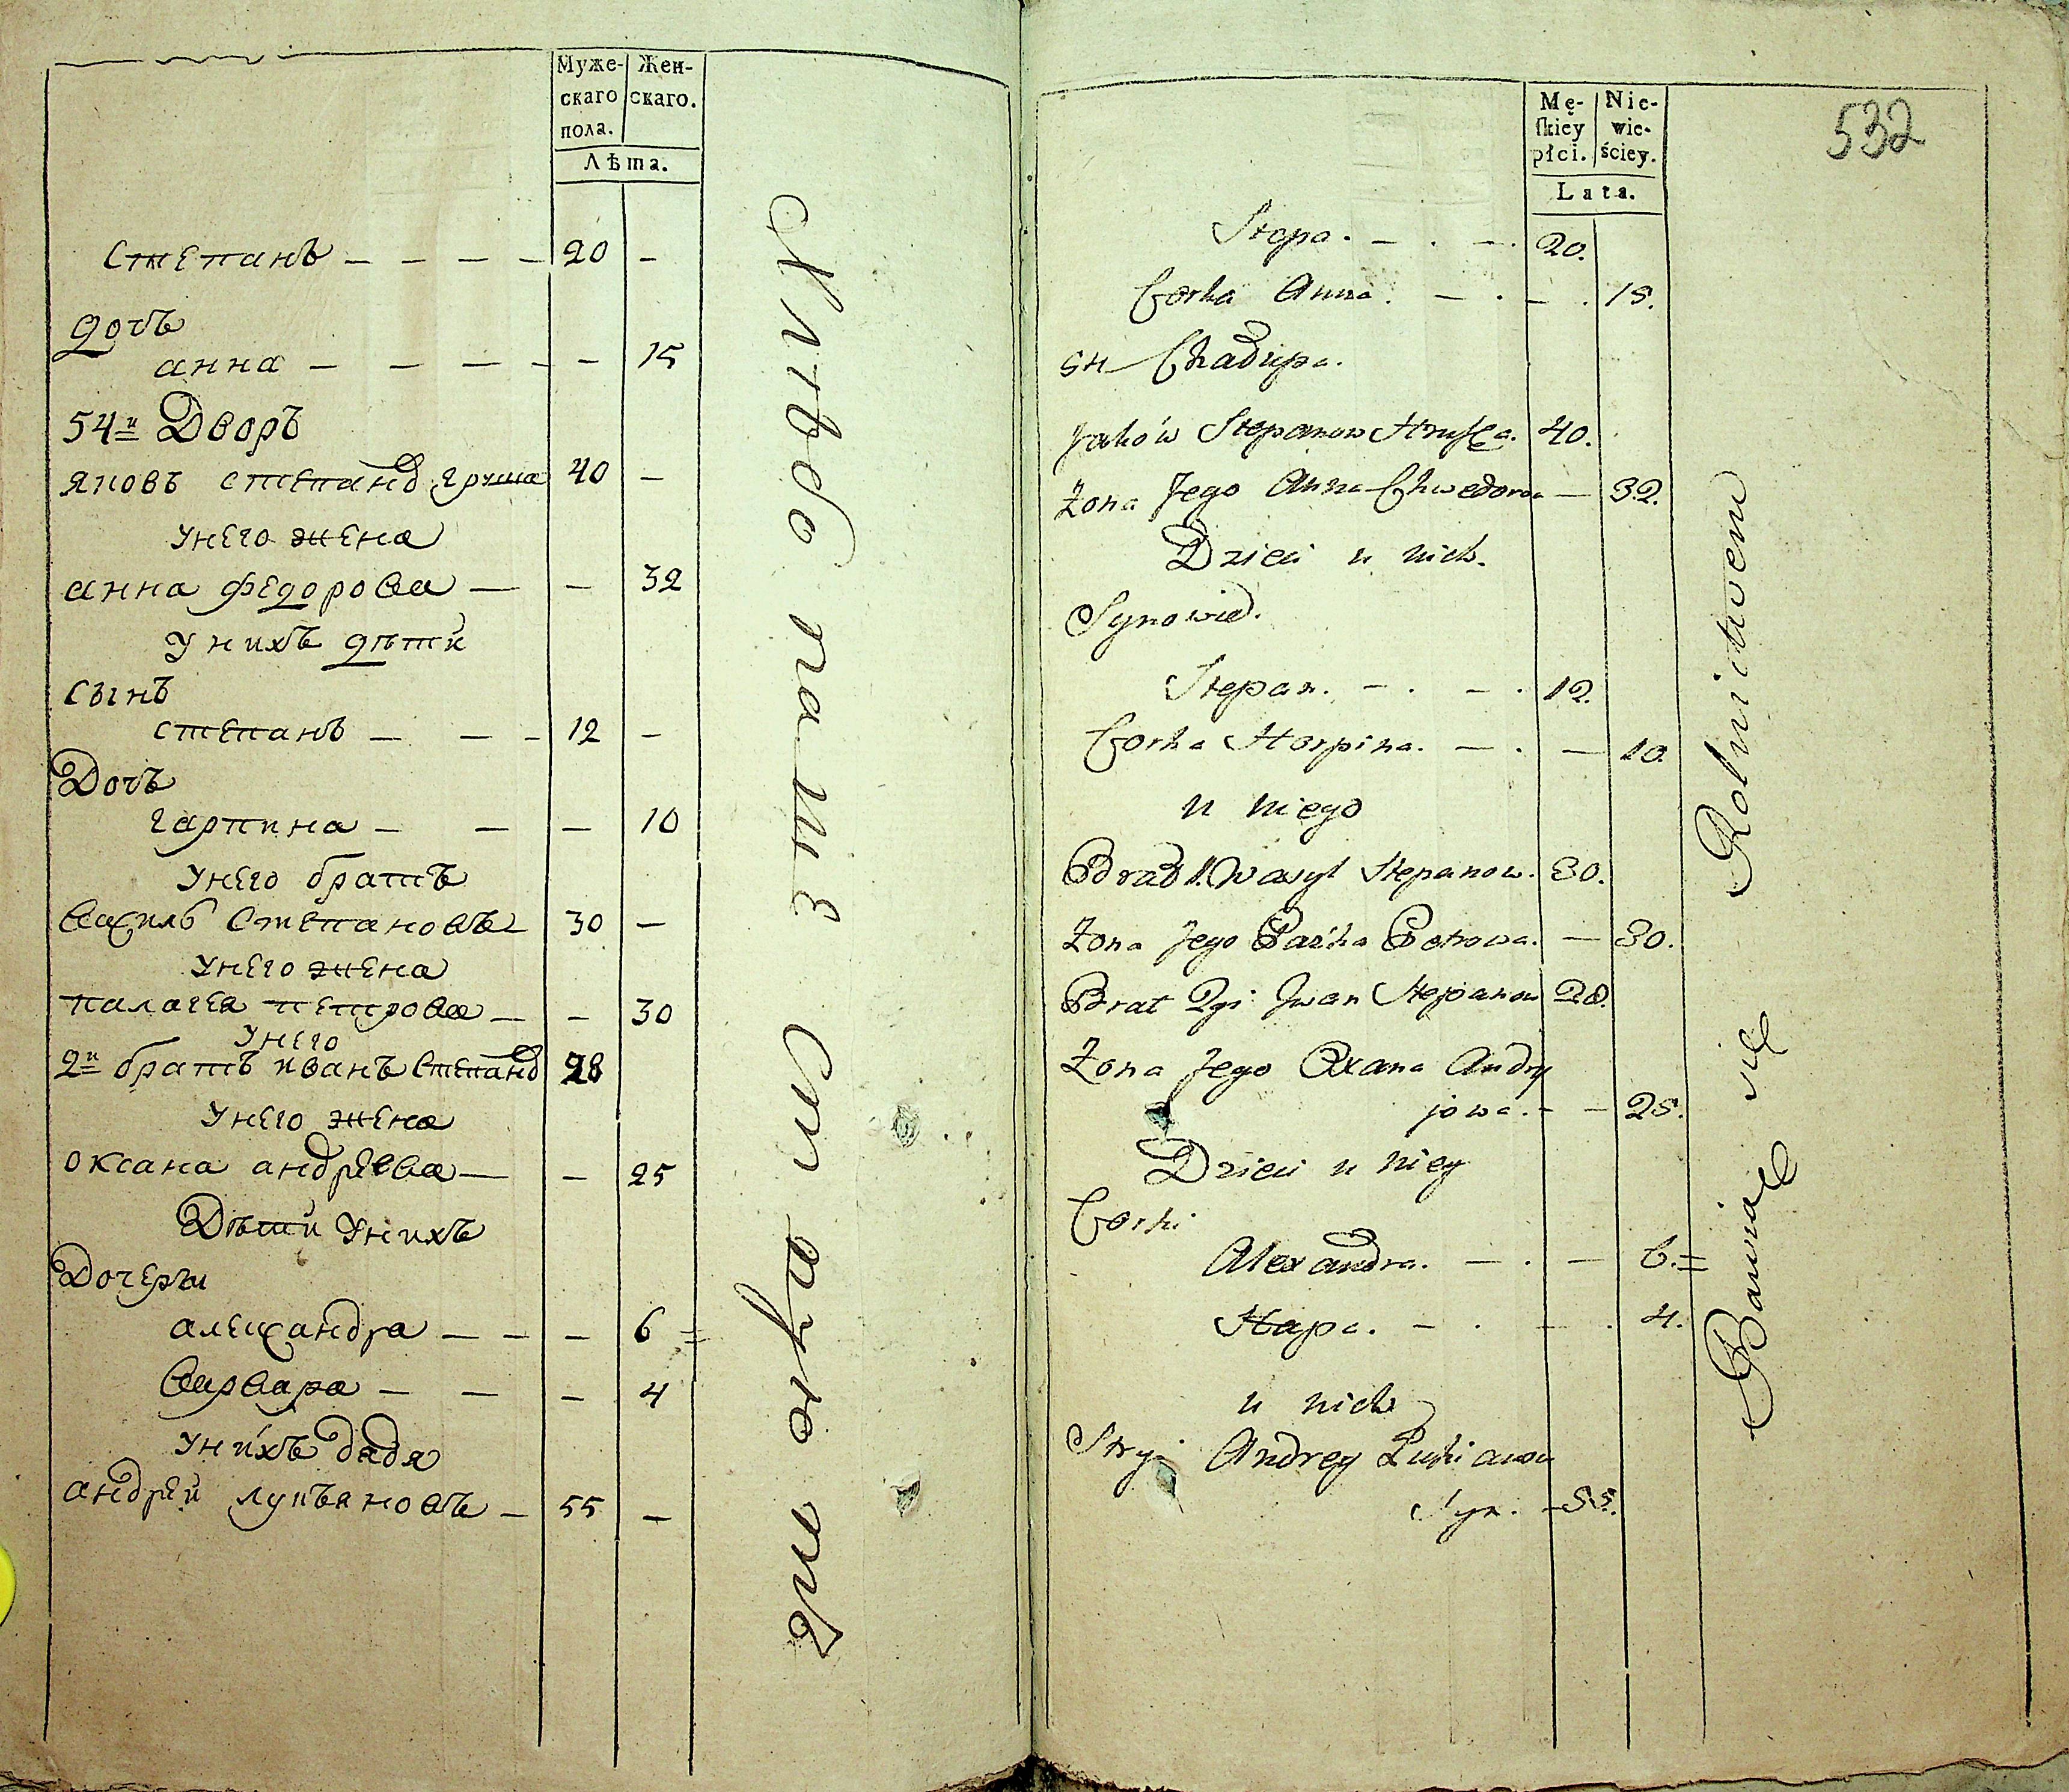 Муже-
скаго
пола.
Жен-
скаго.
Лѣта.
Степанъ — — — — 20 —
дочь
анна — — — — — 15
54й Дворъ
яковъ степанов груша 40 —
унего жена
анна федорова — — 32
унихъ дѣти
сынъ
степанъ — — — 12 —
Дочь
гарпина — — — 10
унего братъ
василь степановъ 30 —
унего жена
палагея петрова — — 30
унего
2й братъ иванъ степанов 28
унего жена
оксана андрѣева — — 25
Дѣти унихъ
Дочеры
александра — — — 6 =
варвара — — — 4
унихъ дядя
андрѣй лукьяновъ — 55 —
Хлѣбопашествуютъ
532
Mę-
skiey
płci.
Nie-
wie-
ściey.
Lata.
Stepa. — . — . 20.
Corka Anna. — . — . 15.
54 Chałupa.
Jaków Stepanow Hrusza. 40.
Żona Jego Anna Chwedorowa — 32.
Dzieci u nich.
Synowie.
Stepan. — . — . 12.
Corka Harpina. — . — 10.
u niego
Brat 1. Wasyl Stepanow. 30.
Żona Jego Paśka Petrowa. — 30.
Brat 2gi Jwan Stepanow 28.
Żona Jego Oxana Andry
jowa. — — 25.
Dzieci u niey
Corki
Alexandra. — . — 6. =
Hapa. — . — . 4.
u nich
Stryi Andrey Łukianow
Syn. — 55.
Bawią się Rolnictwem